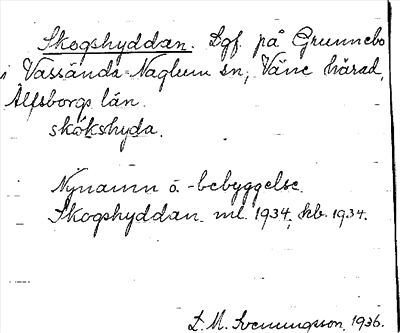 Skogshyddan. Lgf. på Grunnebo
i Vassända-Naglum sn, Väne härad,
Älfsborgs län.
skókshyda.
Nynamn å -bebyggelse.
Skogshyddan ml. 1934, kb. 1934.
L. M. Svenungsson 1936.